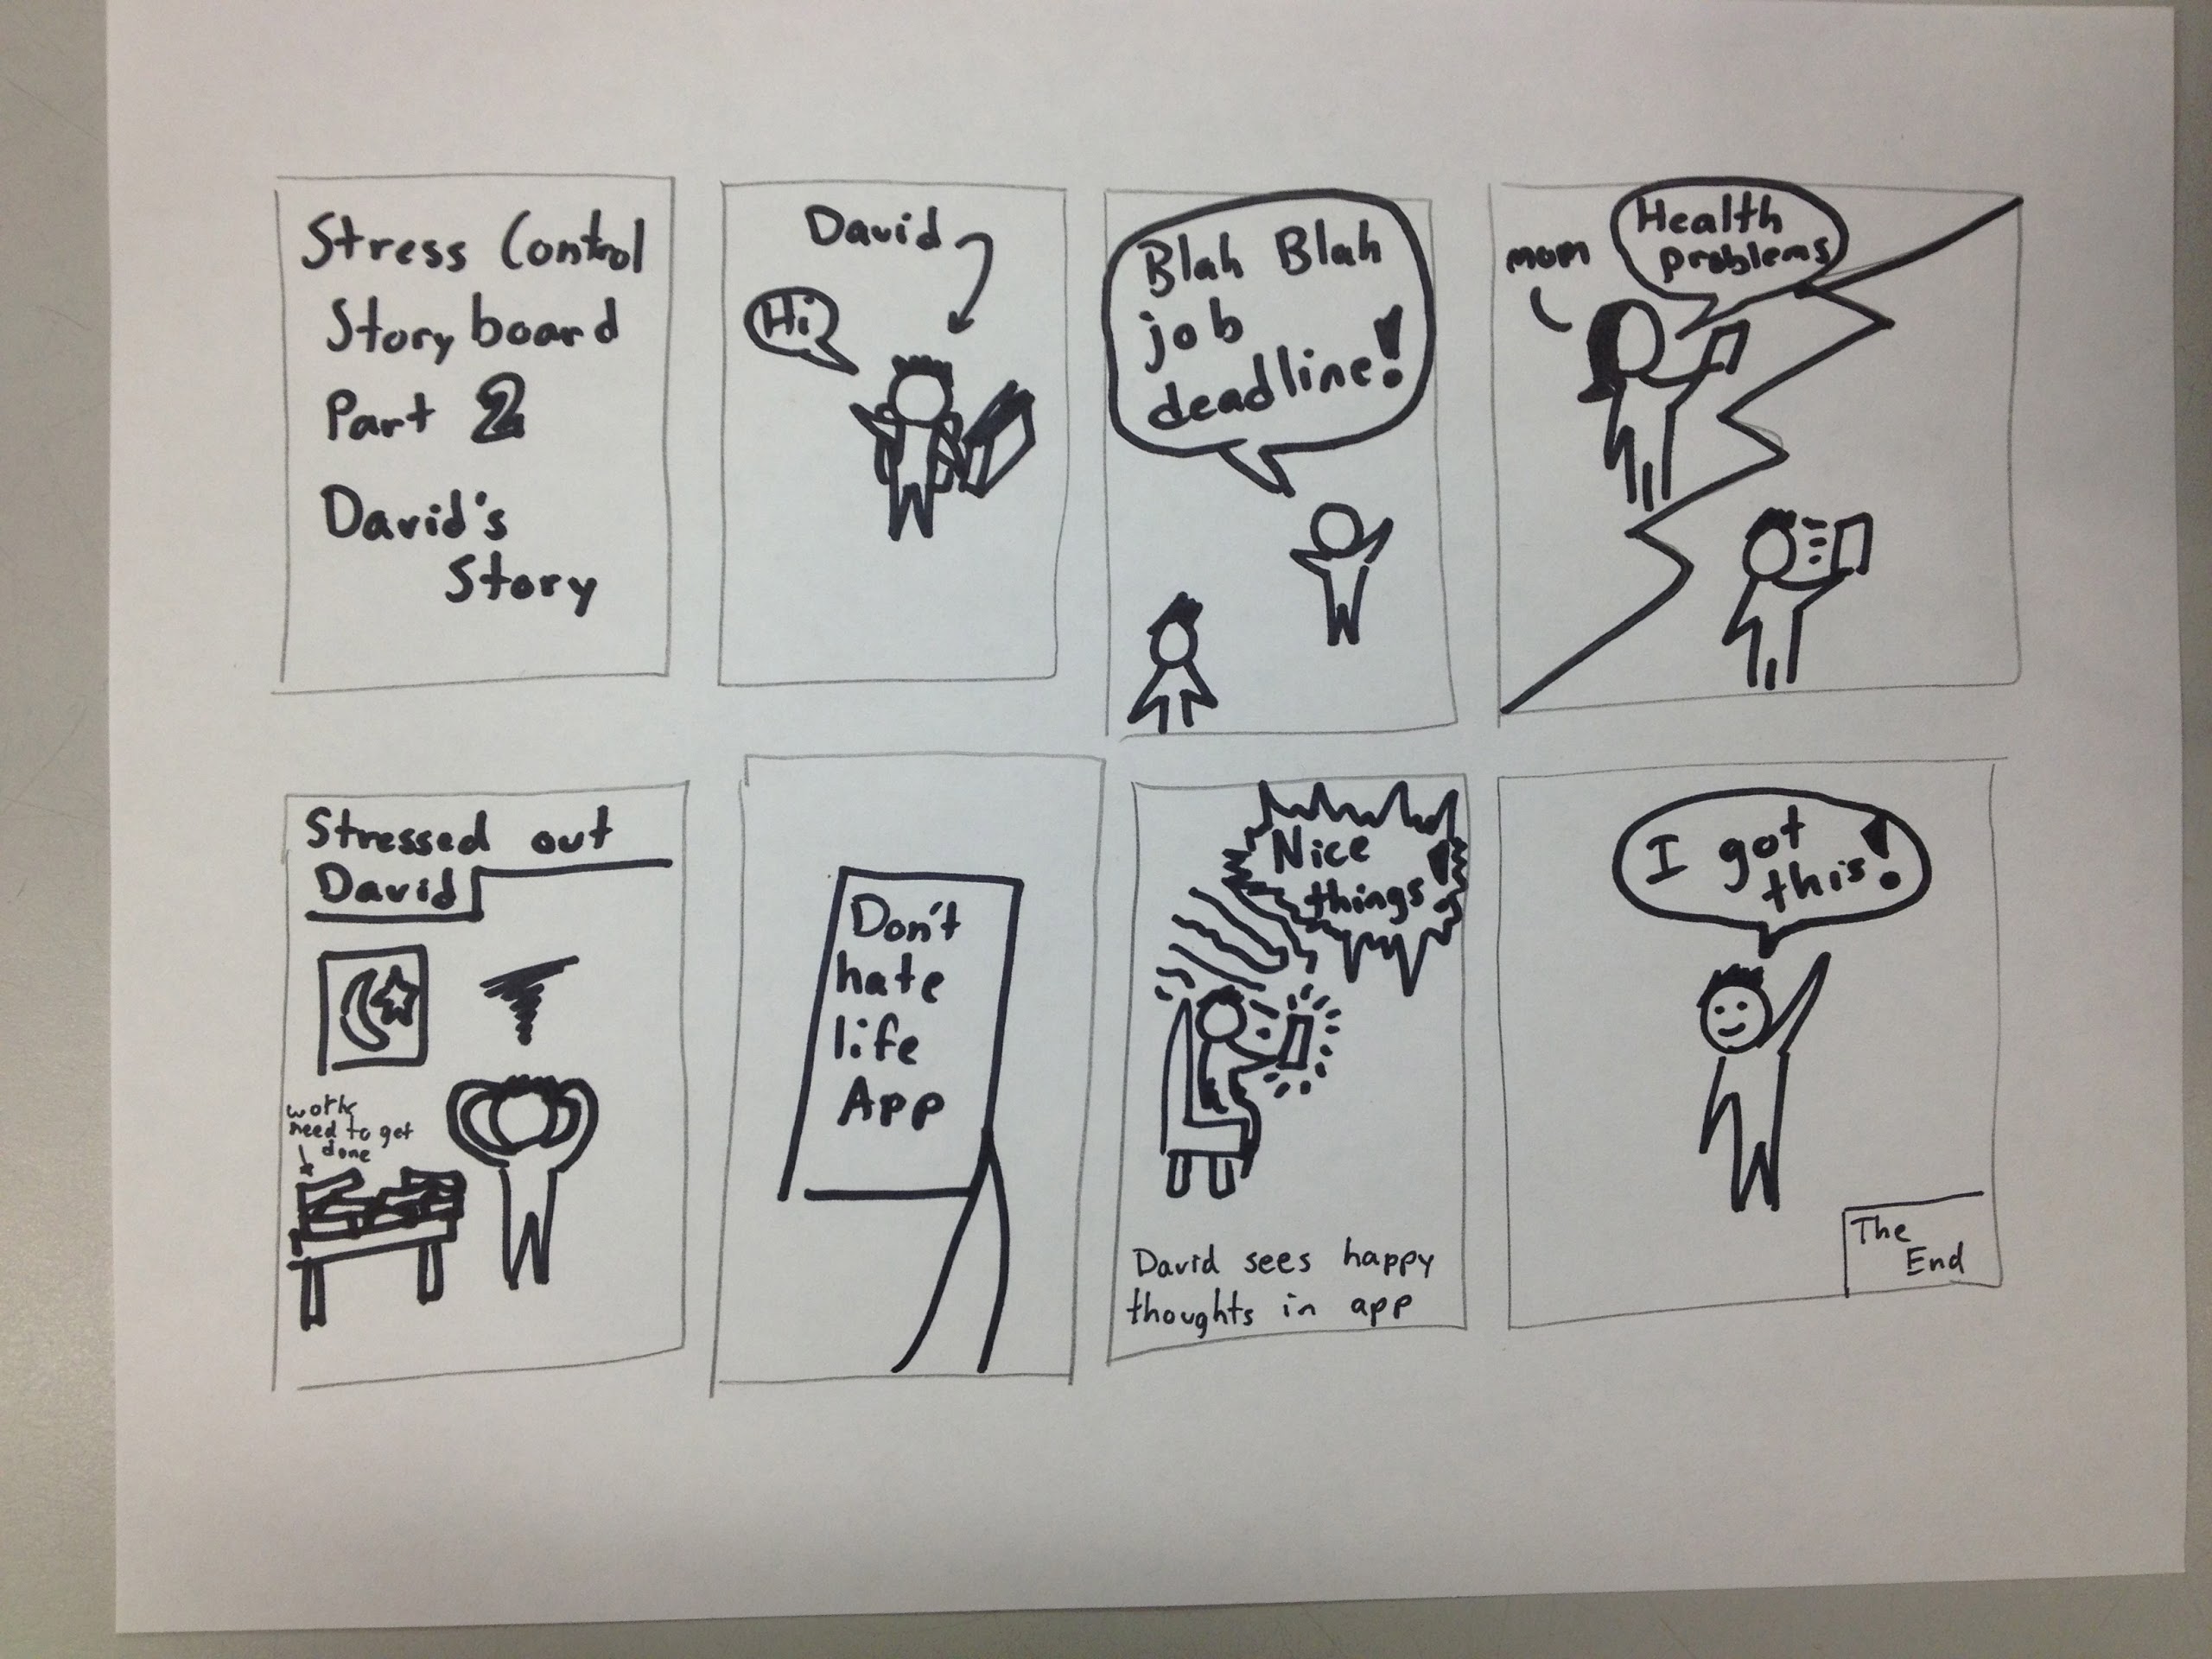 Stress Control
Story board
Part 2
David's
Story
David
Hi
Blah Blah
job
deadline!
mom
Health
problems
Stressed out
David
work
need to get
done
Don't
hate
life
App
Nice
things!
David sees happy
thoughts in app
I got
this!
The
End